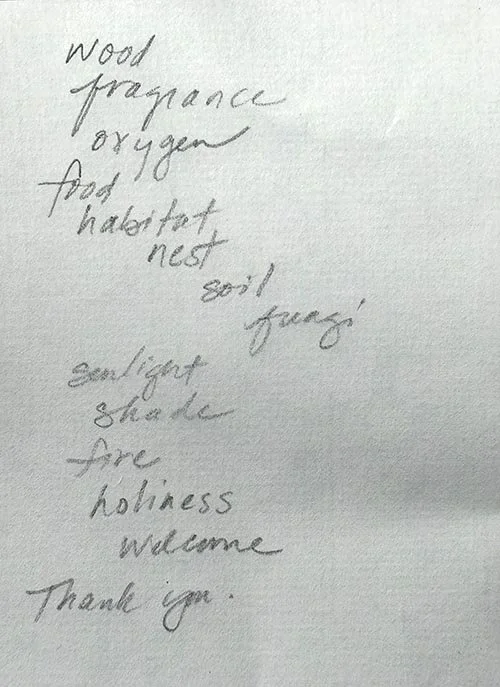 wood
fragrance
oxygen
food
habitat
nest
soil
fungi
sunlight
shade
fire
holiness
welcome
Thank you.